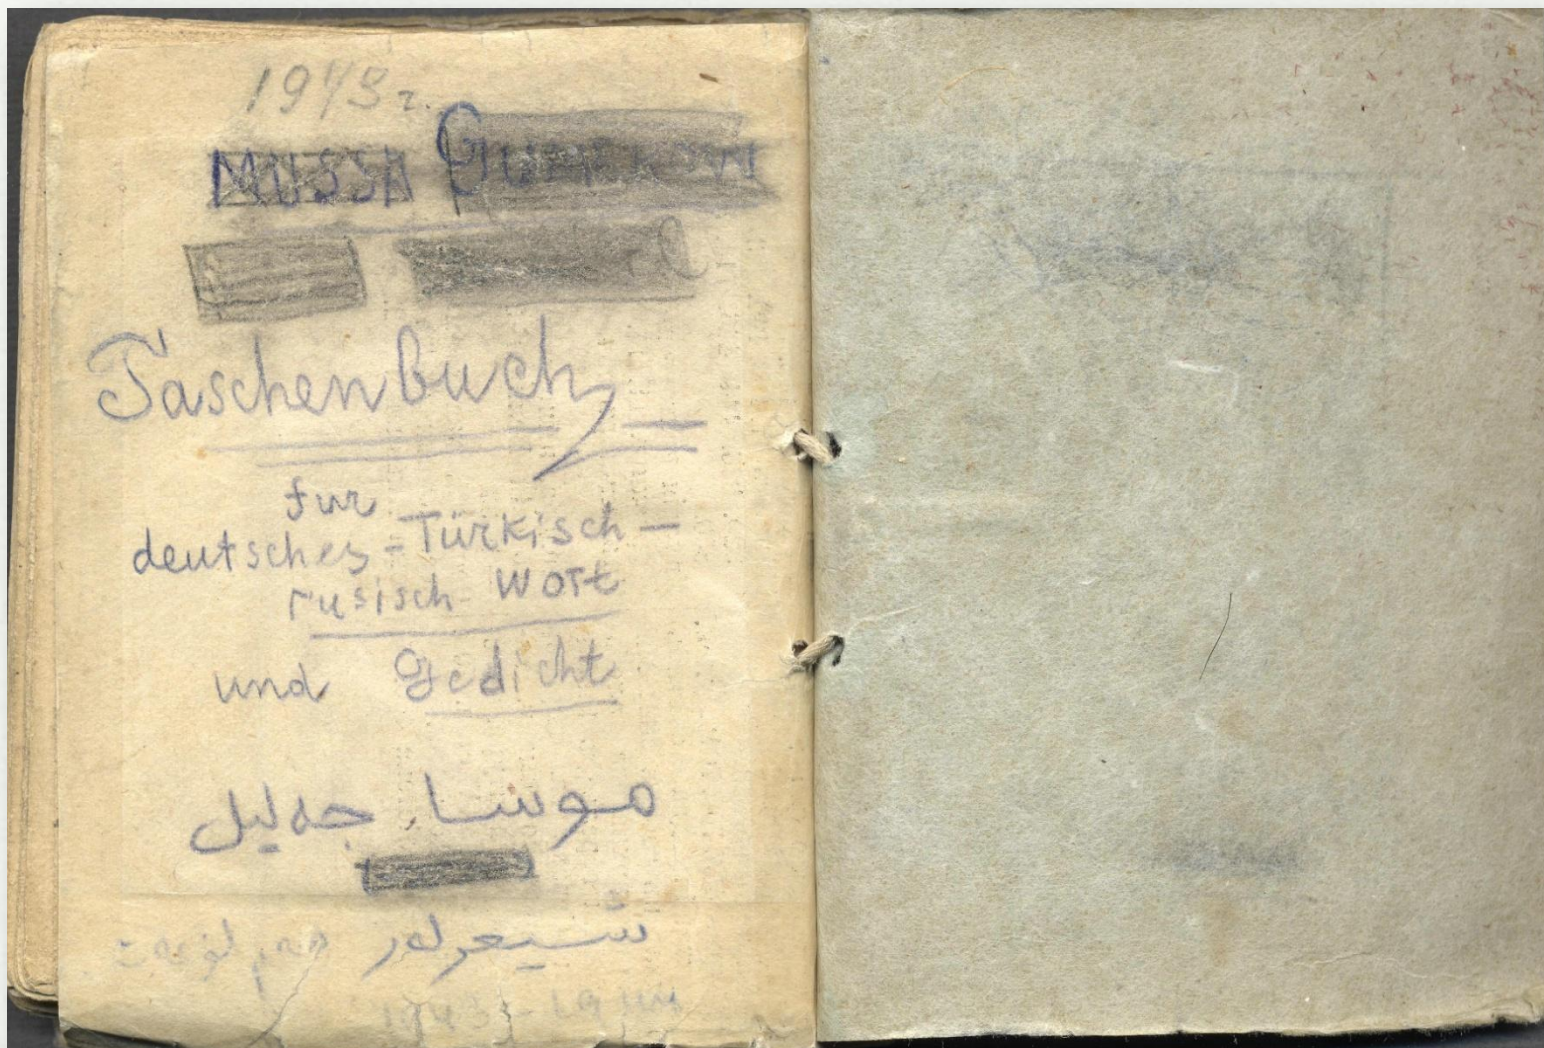 1943 г.
MUSSA
Taschenbuch
fur
deutsches = Türkisch —
rusisch - Wort
und Gedicht
موسا جەلیل
شیعرلەر هەم لوغەت